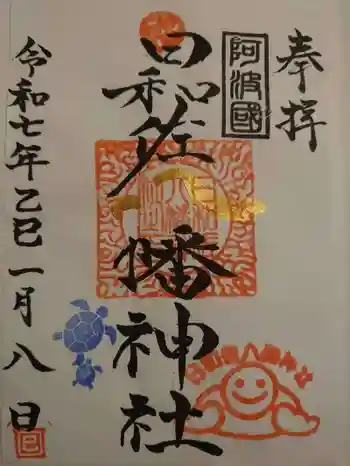 奉拝
阿波國
日和佐
八幡神社
令和七年乙巳一月八日
日和佐八幡神社
巳